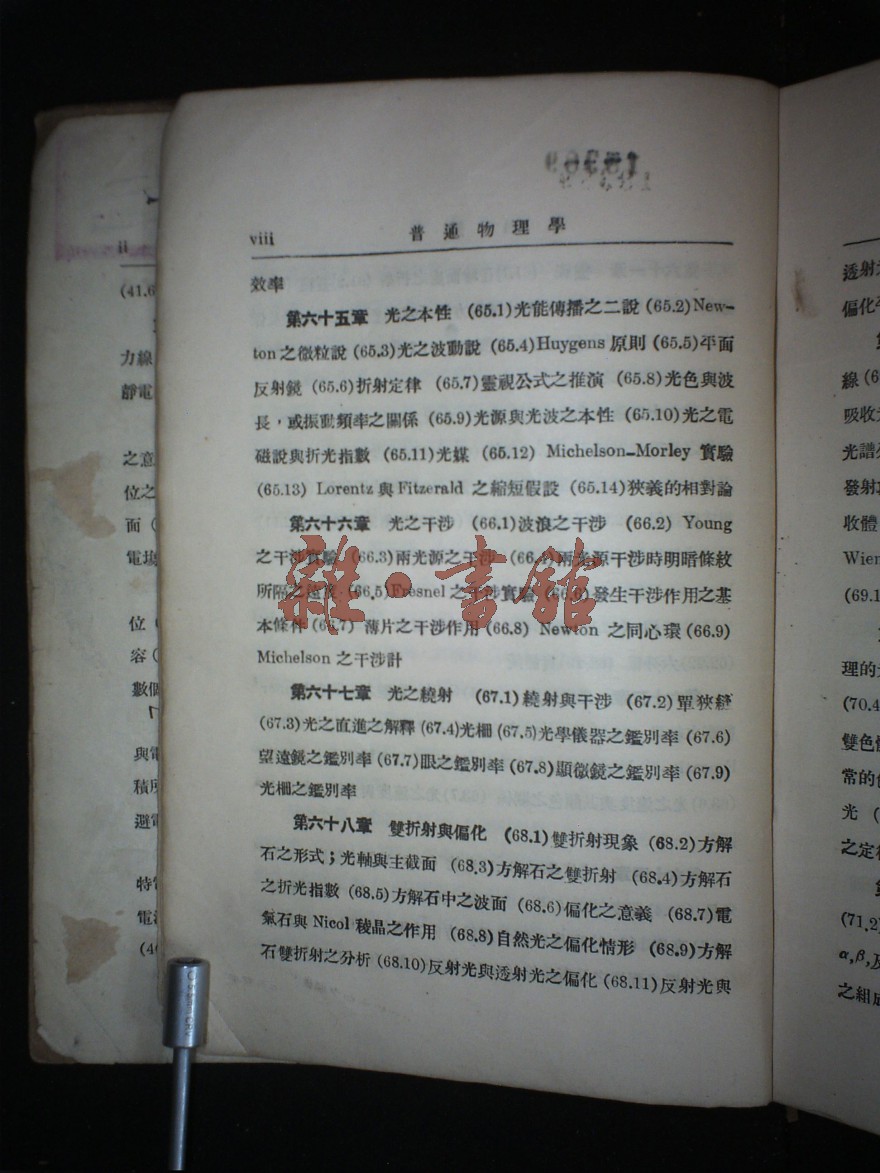 viii 普通物理學
效率
第六十五章 光之本性 (65.1)光能傳播之二說 (65.2)New-
ton之微粒說 (65.3)光之波動說 (65.4)Huygens 原則 (65.5)平面
反射鏡 (65.6)折射定律 (65.7)靈視公式之推演 (65.8)光色與波
長，或振動頻率之關係 (65.9)光源與光波之本性 (65.10)光之電
磁說與折光指數 (65.11)光媒 (65.12) Michelson—Morley 實驗
(65.13) Lorentz 與 Fitzerald 之縮短假設 (65.14)狹義的相對論
第六十六章 光之干涉 (66.1)波浪之干涉 (66.2) Young
之干涉實驗 (66.3)兩光源之干涉 (66.4)兩光源干涉時明暗條紋
所隔之 (66.5)Fresnel之干涉實驗 (66.6)發生干涉作用之基
本條件 (66.7) 薄片之干涉作用 (66.8) Newton 之同心環 (66.9)
Michelson 之干涉計
第六十七章 光之繞射 (67.1)繞射與干涉 (67.2)單狹縫
(67.3)光之直進之解釋 (67.4)光柵 (67.5)光學儀器之鑑別率 (67.6)
望遠鏡之鑑別率 (67.7)眼之鑑別率 (67.8)顯微鏡之鑑別率 (67.9)
光柵之鑑別率
第六十八章 雙折射與偏化 (68.1)雙折射現象 (68.2)方解
石之形式；光軸與主截面 (68.3)方解石之雙折射 (68.4)方解石
之折光指數 (68.5)方解石中之波面 (68.6)偏化之意義 (68.7)電
氣石與 Nicol 稜晶之作用 (68.8)自然光之偏化情形 (68.9)方解
石雙折射之分析 (68.10)反射光與透射光之偏化 (68.11)反射光與
雜·書館
ii
(41.6
力線
靜電
之意
位之
面
電場
位
容
數個
與電
積所
避電
電
透射
偏化
線
吸收
光譜
發射
收體
Wien
(69.1
理的
(70.4
雙色
常的
光
之定
(71.2
α,β,及
之組成